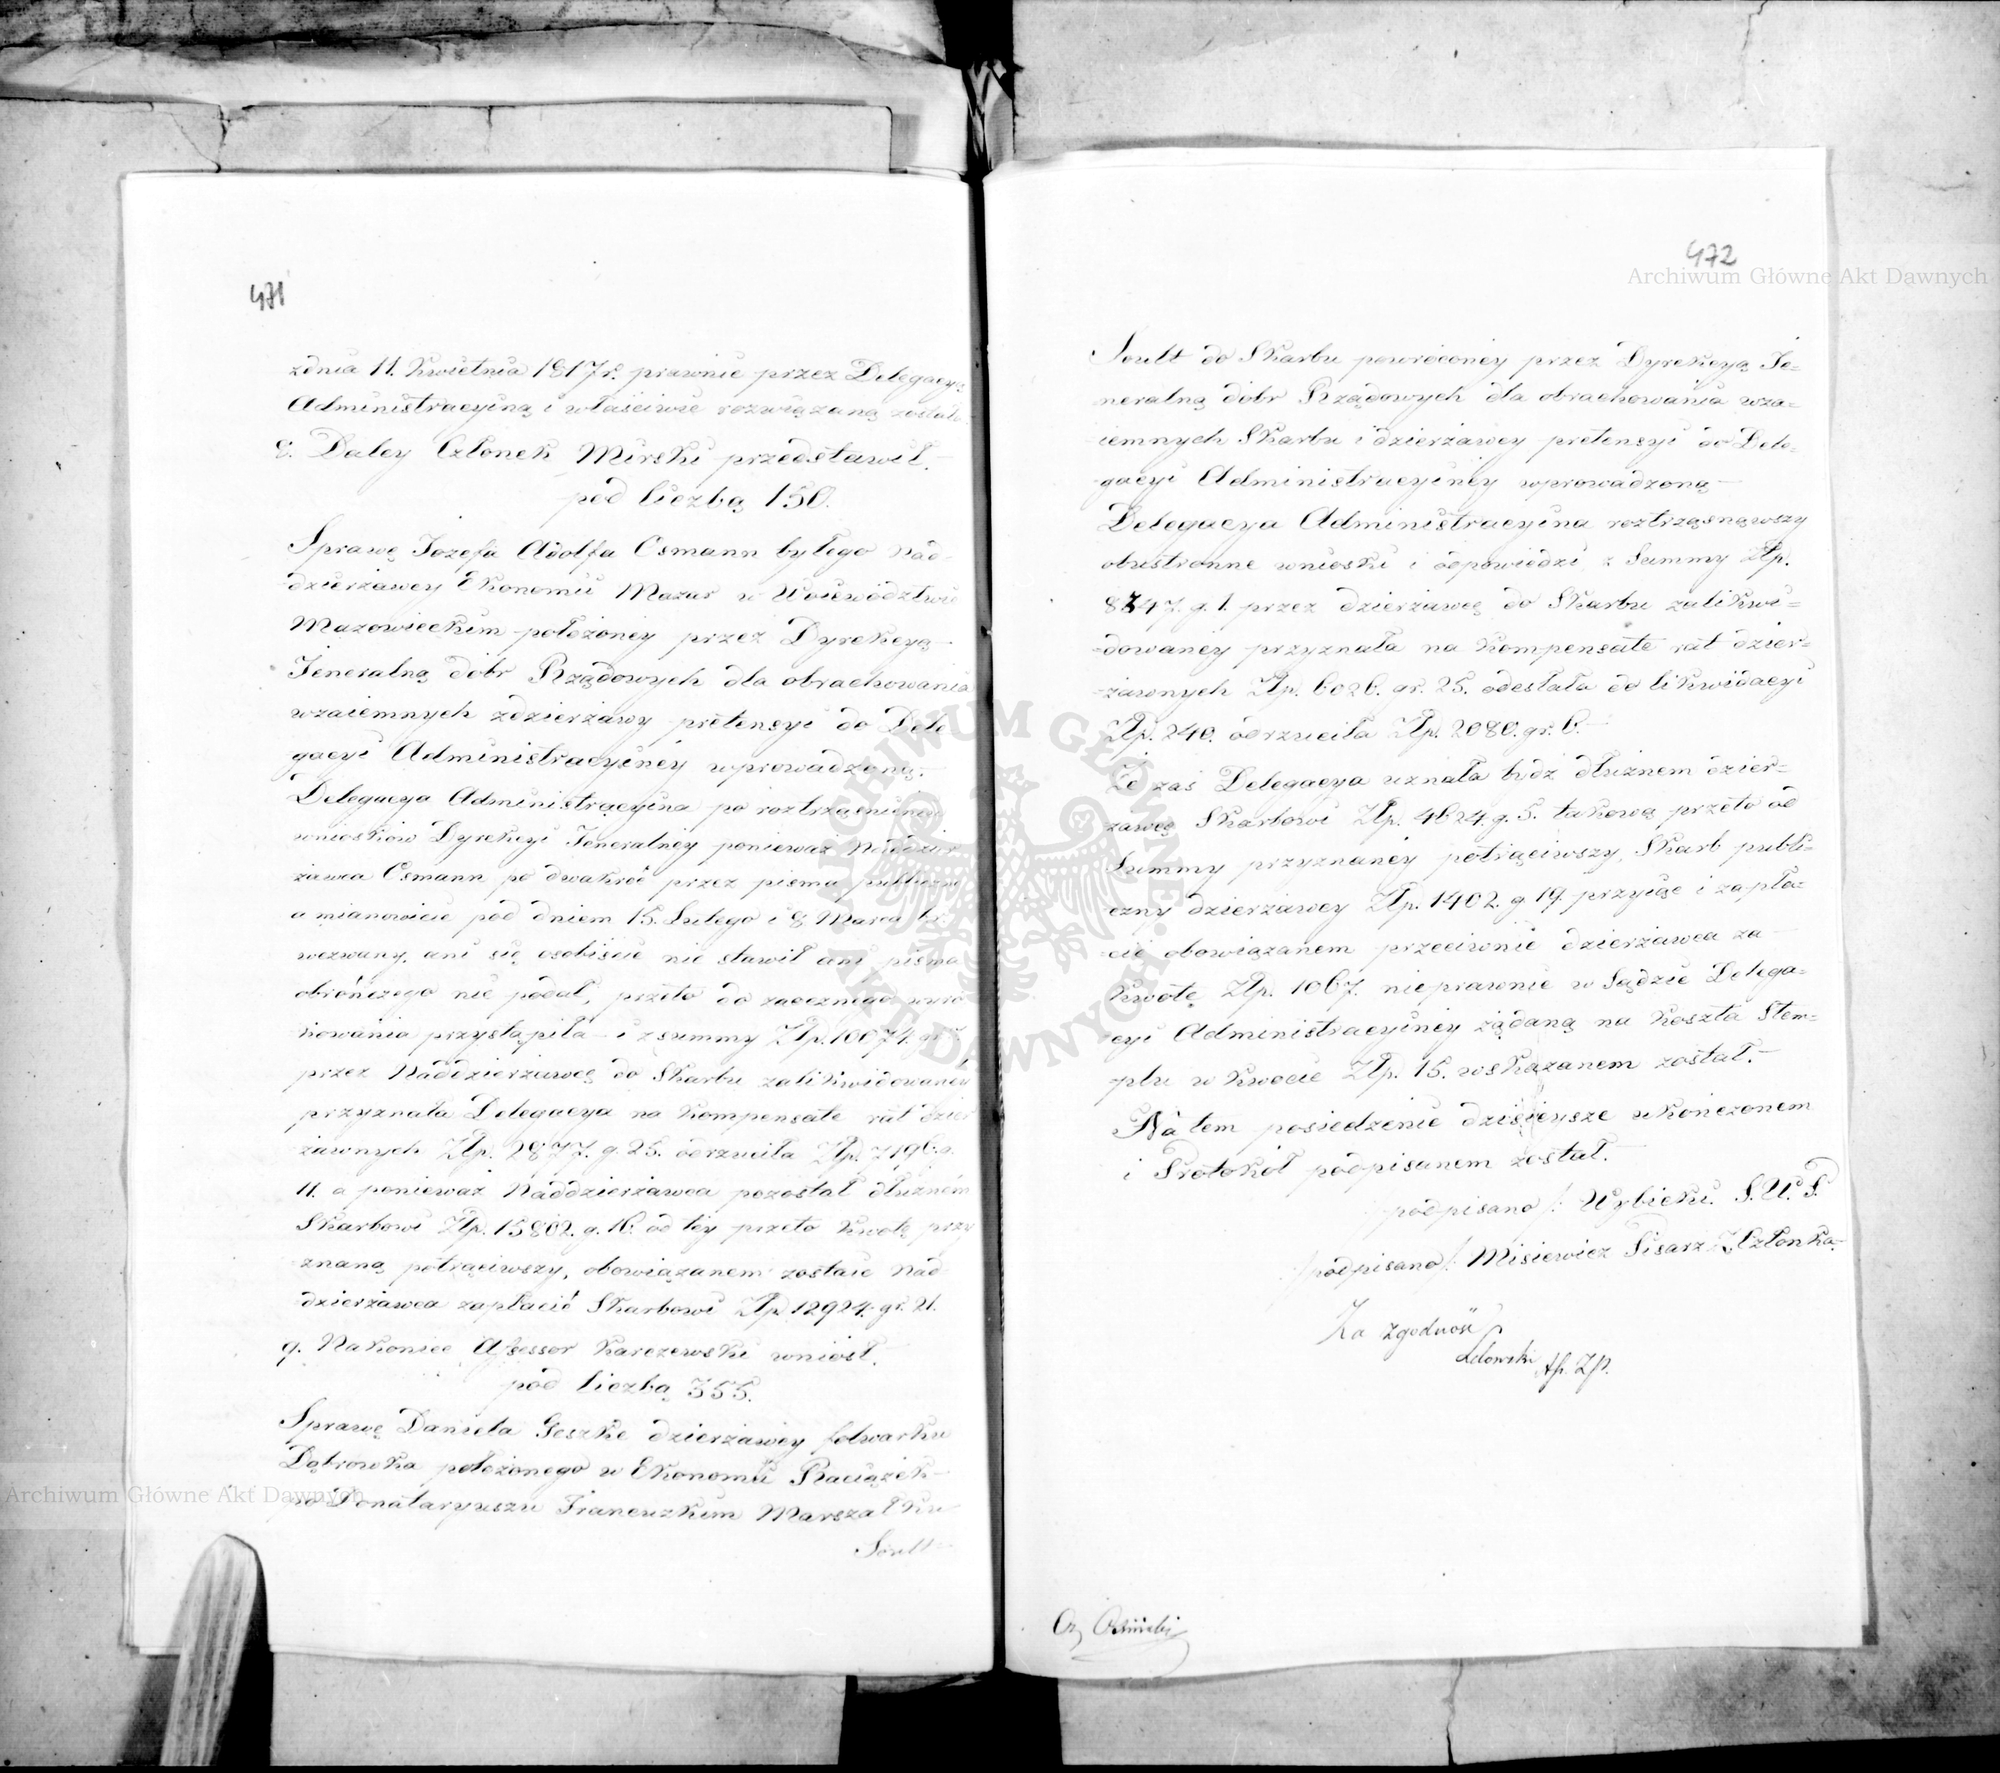 471
zdnia 11. Kwietnia 1817 r. prawnie przez Delegacyą
Administracyiną i właściwie rozwiązaną został
8. Daley Członek Mirski przedstawił.
pod liczbą 150.
Sprawę Jozefa Adolfa Osmann byłego Nad-
dzierżawcy Ekonomii Mazur w Woiewództwie
Mazowieckim położoney przez Dyrekcyą
Jeneralną dobr Rządowych dla obrachowania
wzaiemnych zdzierżawy pretensyi do Dele
gacyi Administracyiney wprowadzoną.
Delegacya Administracyina po roztrząśnieniu
wniosków Dyrekcyi Jeneralney ponieważ Naddzier
żawca Osmann po dwakroć przez pisma publiczne
a mianowicie pod dniem 15. Lutego i 8 Marca br.
wezwany, ani się osobiście nie stawił ani pisma
obrończego nie podał, przeto do zaocznego wyro
kowania przystąpiła i z summy Złp. 10074. gr.
przez Naddzierżawcę do Skarbu zalikwidowaney
przyznała Delegacya na kompensatę rat dzier
żawnych Złp. 2877. g. 25. odrzuciła Złp. 7196. g.
11. a ponieważ Naddzierżawca pozostał dłużnem
Skarbowi Złp. 15802. g. 16. od tey przeto kwotę przy
znaną potrąciwszy, obowiązanem zostaie Nad
dzierżawca zapłacić Skarbowi Złp. 12924. gr. 21.
9. Nakoniec Assessor Karczewski wniósł.
pod liczbą 355.
Sprawę Daniela Geszke dzierżawcy folwarku
Dąbrowka położonego w Ekonomii Raciążek
po Donataryuszu Francuzkim Marszałku
Soult
472
Soult do Skarbu powróconey przez Dyrekcyą Je=
neralną dobr Rządowych dla obrachowania wza=
iemnych Skarbu i dzierżawcy pretensyi do Dele=
gacyi Administracyiney wprowadzoną
Delegacya Administracyina roztrząsnąwszy
obustronne wnioski i odpowiedzi z Summy Złp.
8347. g. 1. przez dzierżawcę do Skarbu zalikwi=
=dowaney przyznała na kompensatę rat dzier=
=żawnych Złp. 6026. gr. 25. odesłała do likwidacyi
Złp. 240. odrzuciła Złp. 2080. gr. 6.
Że zaś Delegacya uznała bydź dłużnem dzier=
żawcę Skarbowi Złp. 4624. g. 5. takową przeto od
Summy przyznaney potrąciwszy, Skarb publi=
czny dzierżawcy Złp. 1402. g. 19. przyiąć i zapła=
cić obowiązanem przeciwnie dzierżawca za
kwotę Złp. 1067. nieprawnie w Sądzie Delega=
cyi Administracyiney żądaną na koszta Stem=
plu w kwocie Złp. 15. wskazanem został.
Na tem posiedzenie dzisieysze ukończonem
i Protokół podpisanem został.
podpisano/: Wybicki. S. W. P.
/podpisano/: Misiewicz Pisarz Z. Członka
Za zgodność